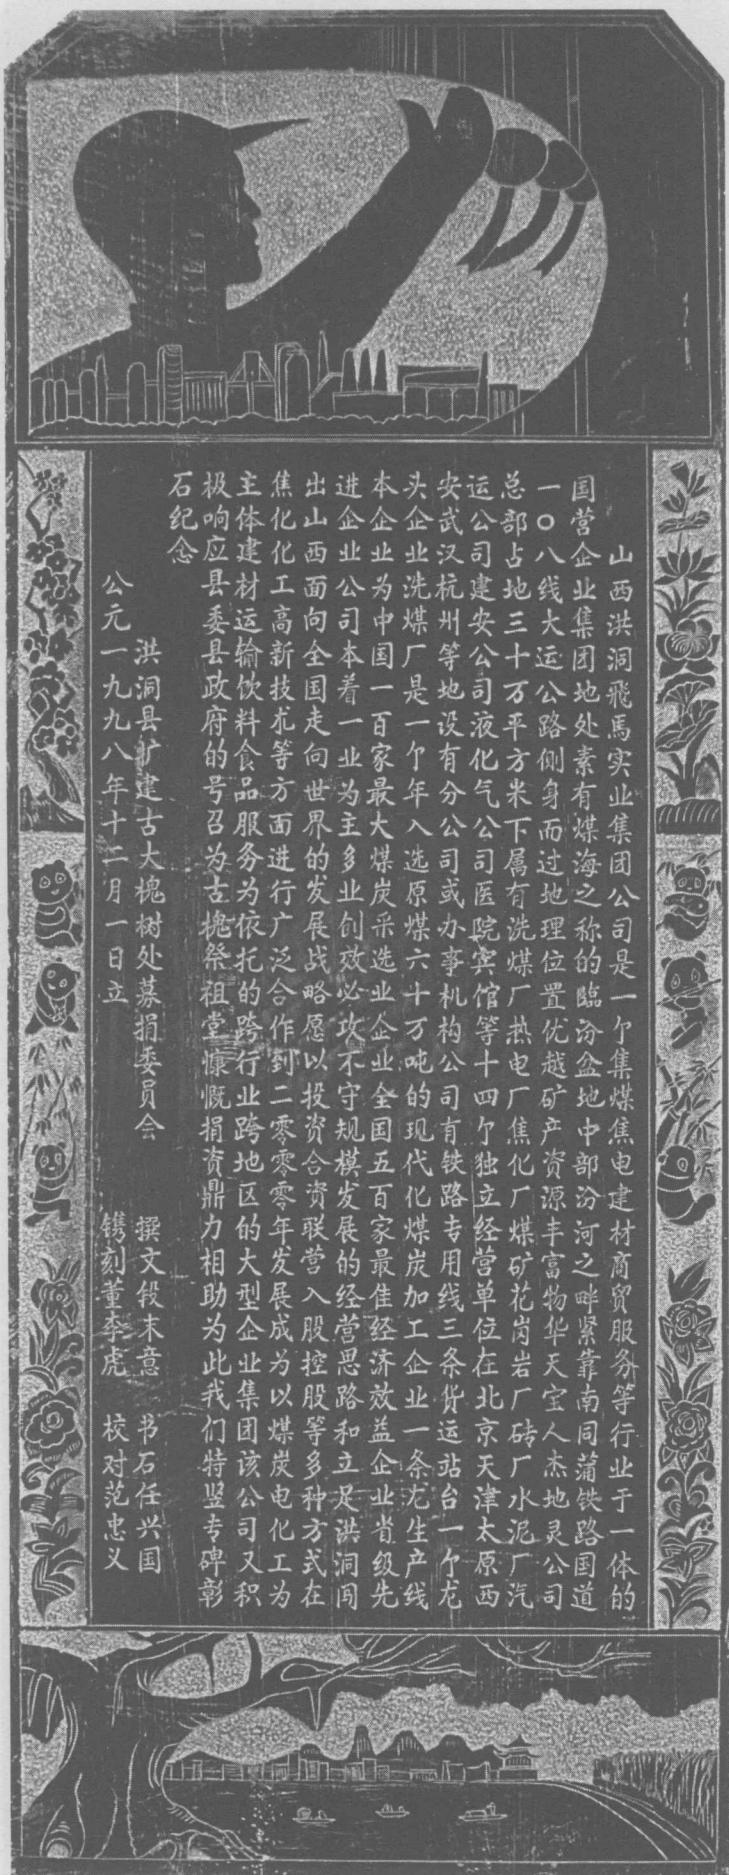 山西洪洞飛馬实业集团公司是一个集煤焦电建材商贸服务等行业于一体的
国营企业集团地处素有煤海之称的臨汾盆地中部汾河之畔紧靠南同蒲铁路国道
一〇八线大运公路侧身而过地理位置优越矿产资源丰富物华天宝人杰地灵公司
总部占地三十万平方米下属有洗煤厂热电厂焦化厂煤矿花岗岩厂砖厂水泥厂汽
运公司建安公司液化气公司医院宾馆等十四个独立经营单位在北京天津太原西
安武汉杭州等地设有分公司或办事机构公司有铁路专用线三条货运站台一个龙
头企业洗煤厂是一个年入选原煤六十万吨的现代化煤炭加工企业一条龙生产线
本企业为中国一百家最大煤炭采选业企业全国五百家最佳经济效益企业省级先
进企业公司本着一业为主多业创效必攻不守规模发展的经营思路和立足洪洞闯
出山西面向全国走向世界的发展战略愿以投资合资联营入股控股等多种方式在
焦化化工高新技术等方面进行广泛合作到二零零零年发展成为以煤炭电化工为
主体建材运输饮料食品服务为依托的跨行业跨地区的大型企业集团该公司又积
极响应县委县政府的号召为古槐祭祖堂慷慨捐资鼎力相助为此我们特竖专碑彰
石纪念
洪洞县扩建古大槐树处募捐委员会 撰文段末意 书石任兴国
公元一九九八年十二月一日立 镌刻董李虎 校对范忠义